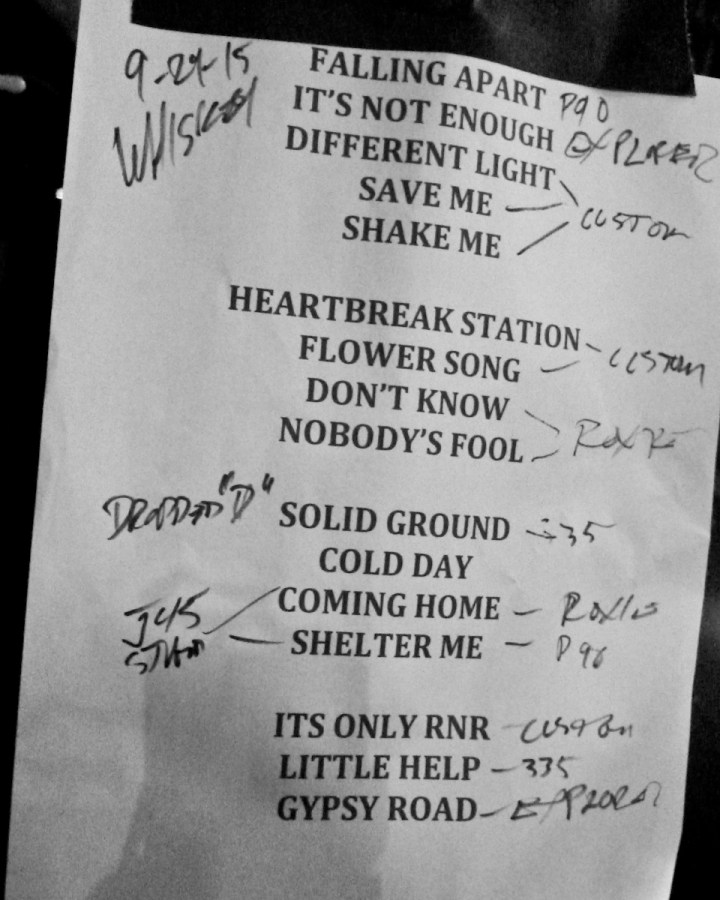 9-24-15
WHISKEY
FALLING APART P90
IT'S NOT ENOUGH EXPLORER
DIFFERENT LIGHT
SAVE ME CUSTOM
SHAKE ME
HEARTBREAK STATION
FLOWER SONG CUSTOM
DON'T KNOW
NOBODY'S FOOL
DROPPED "D" SOLID GROUND 335
COLD DAY
J45 COMING HOME
STAND SHELTER ME - P90
ITS ONLY RNR - CUSTOM
LITTLE HELP - 335
GYPSY ROAD - EXPLORER